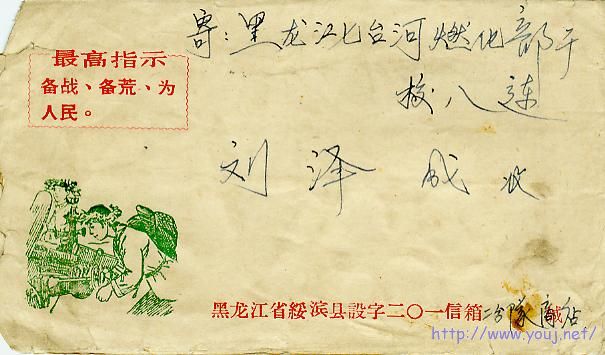 寄：黑龙江七台河燃化部干
校八连
刘泽成 收
最高指示
备战、备荒、为
人民。
黑龙江省綏滨县設字二〇一信箱二分隊商店 緘
http://www.youj.net/